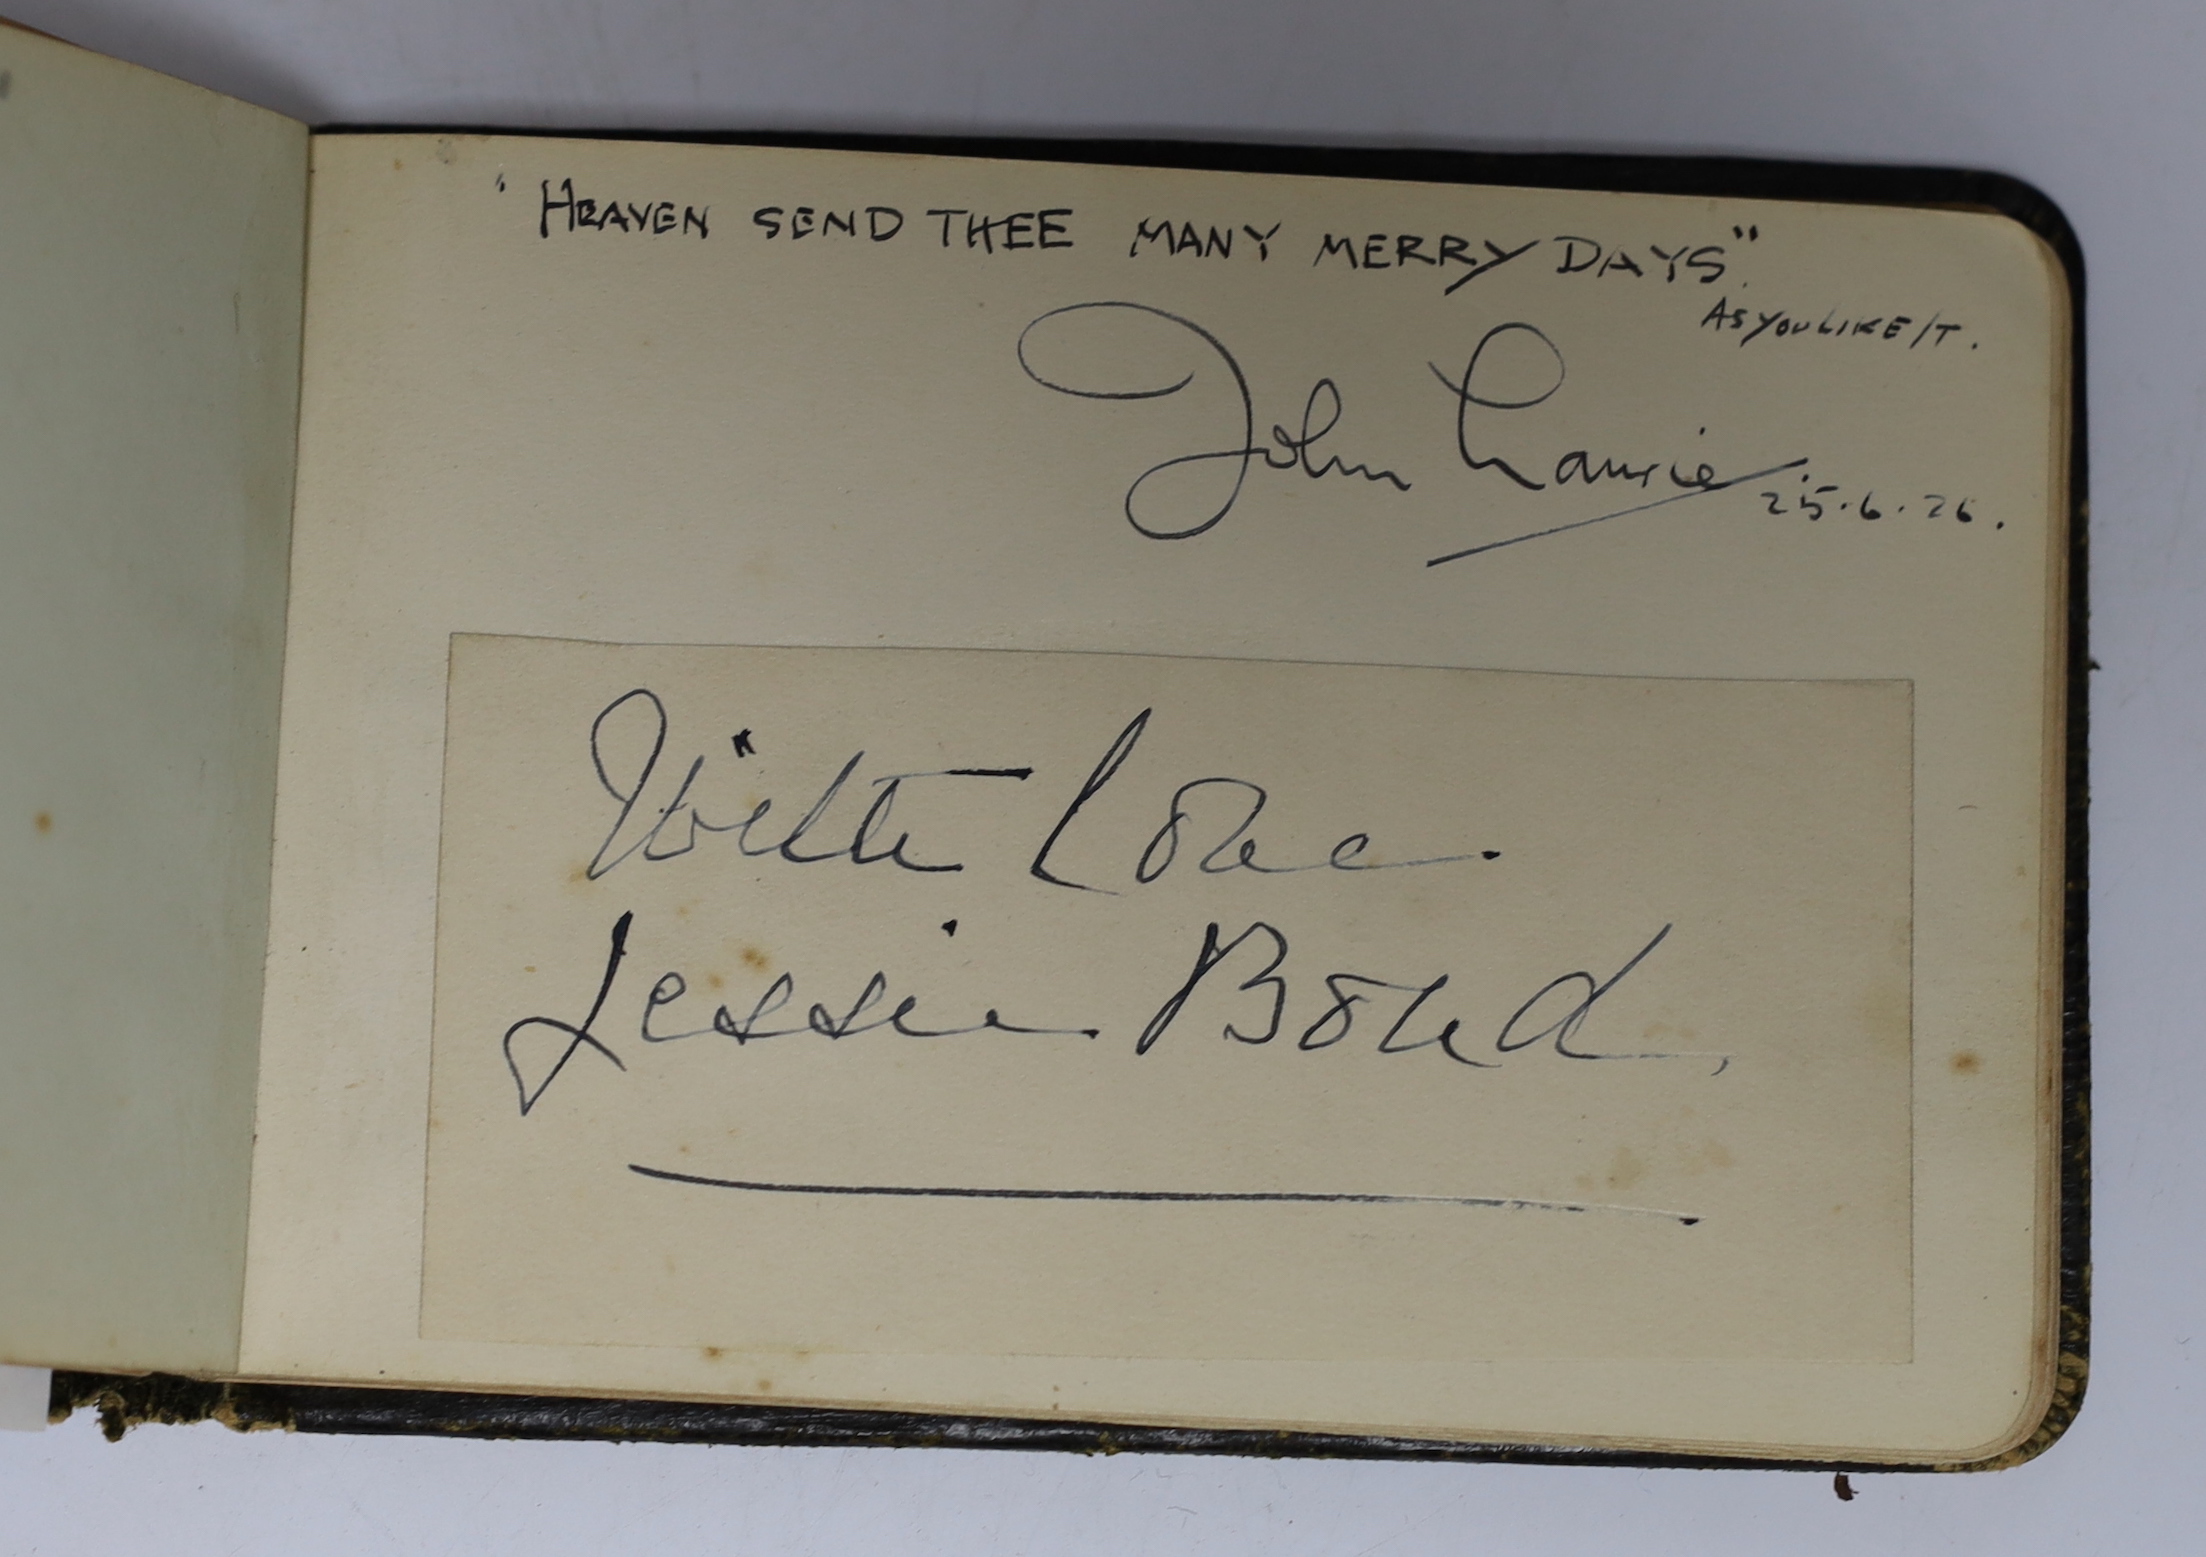 ' HEAVEN SEND THEE MANY MERRY DAYS".
AS YOU LIKE IT.
John Laurie
25.6.26.
Violette Lore
Jessie Bond,